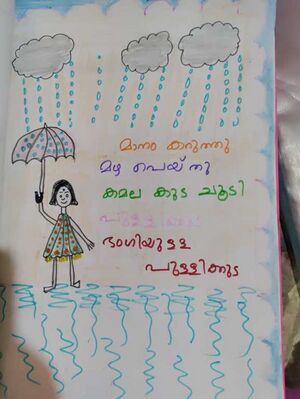 മാനം കറുത്തു
മഴ പെയ്തു
കമല കുട ചൂടി
പുള്ളിക്കുട
ഭംഗിയുള്ള
പുള്ളിക്കുട